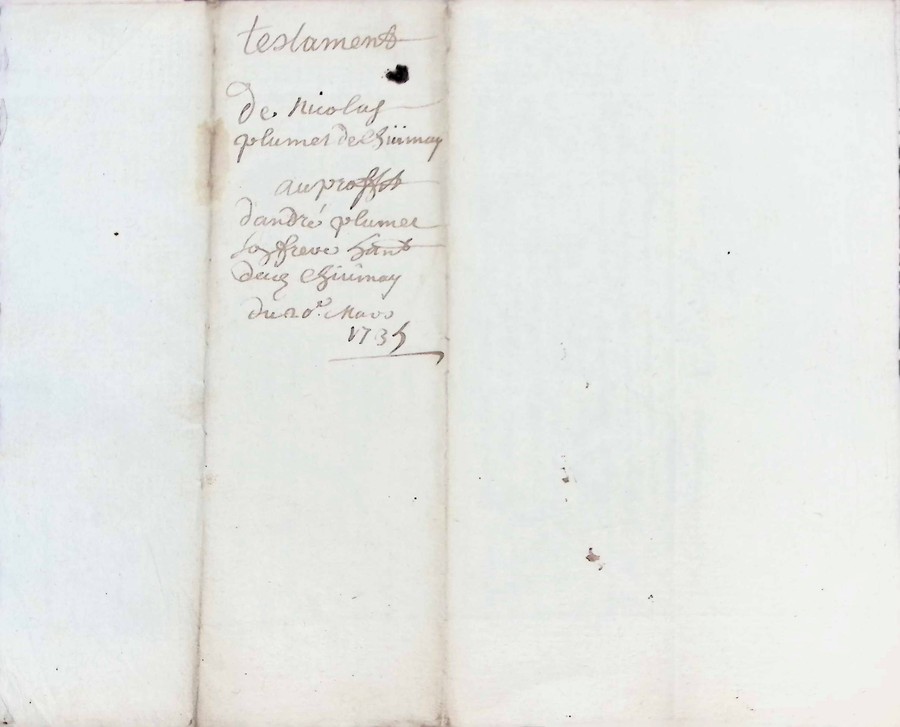 testament
de Nicolas
plumet de Chiimay
au proffit
d'andré plumet
son frere
Chiimay
du 20e. Mars
1735